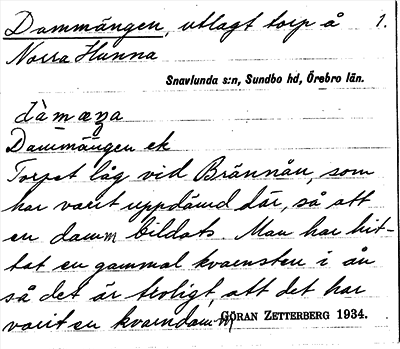 Dammängen, utlagt torp å 1.
Norra Hunna
Snavlunda s:n, Sundbo hd, Örebro län.
dàmæŋa
Dammängen ek
Torpet låg vid Brännån, som
har varit uppdämd där, så att
en damm bildats. Man har hit-
tat en gammal kvarnsten i ån
så det är troligt, att det har
varit en kvarndamm
GÖRAN ZETTERBERG 1934.